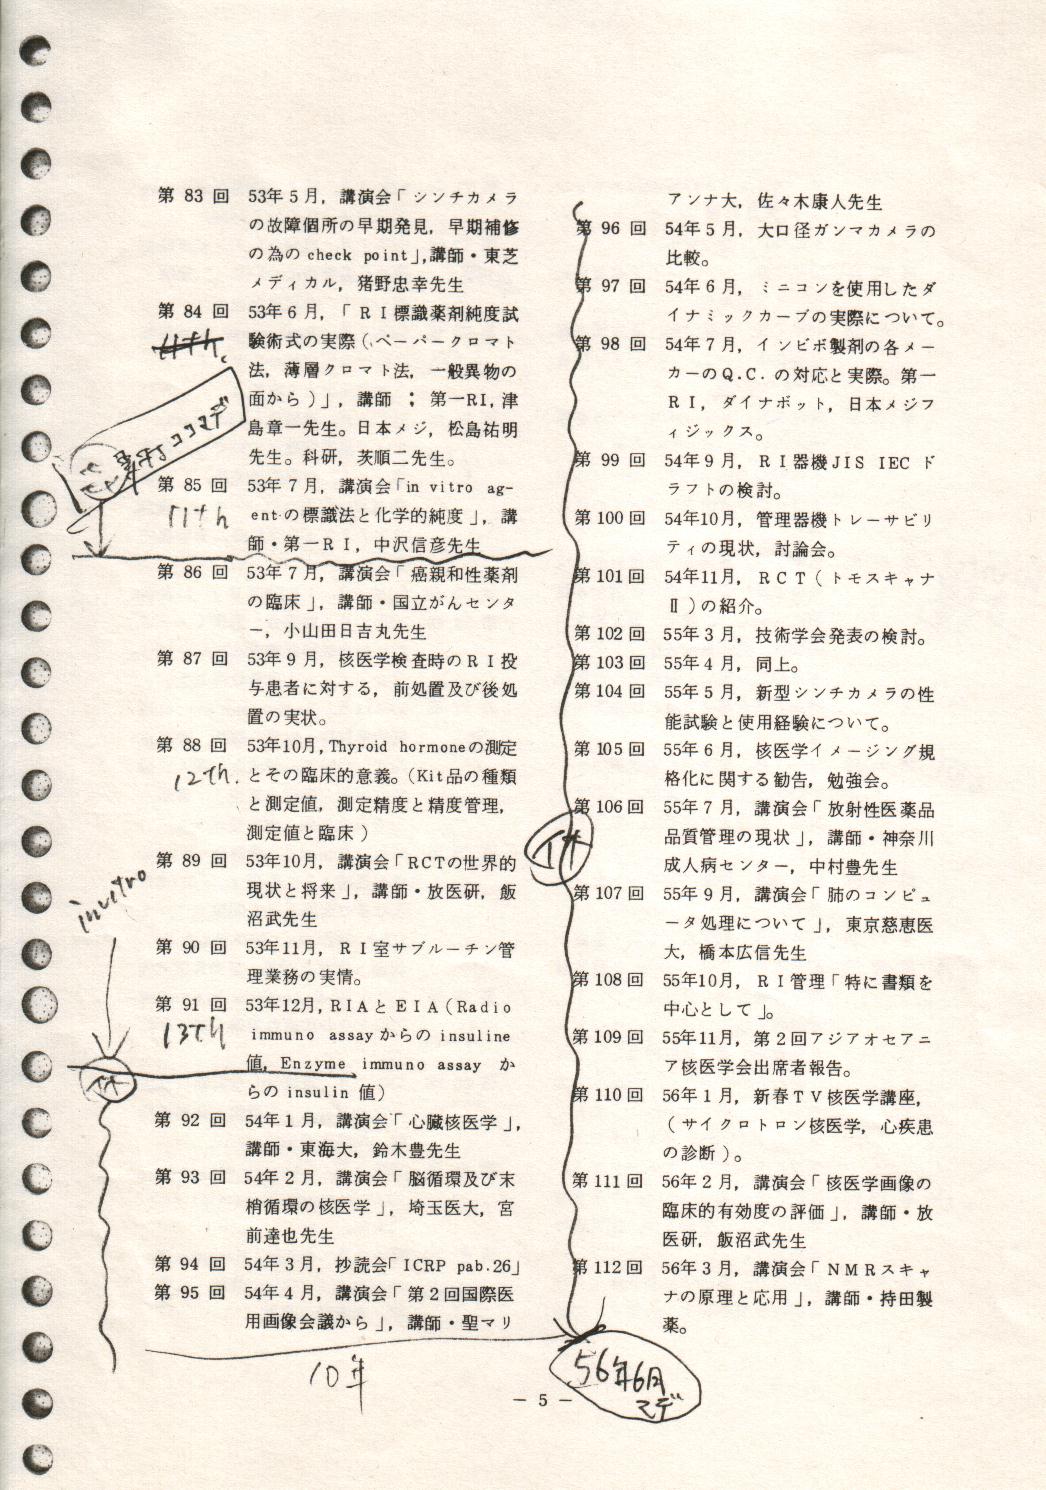 第 83 回　53年5月，講演会「シンチカメラ
の故障個所の早期発見，早期補修
の為の check point」,講師・東芝
メディカル，猪野忠幸先生
第 84 回　53年6月，「ＲＩ標識薬剤純度試
験術式の実際（ペーパークロマト
法，薄層クロマト法，一般異物の
面から）」，講師；第一RI, 津
島章一先生。日本メジ，松島祐明
先生。科研，茨順二先生。
ココマデ
第 85 回　53年7月，講演会「in vitro ag-
11th
entの標識法と化学的純度」，講
師・第一ＲＩ，中沢信彦先生
第 86 回　53年7月，講演会「癌親和性薬剤
の臨床」，講師・国立がんセンタ
ー，小山田日吉丸先生
第 87 回　53年9月，核医学検査時のＲＩ投
与患者に対する，前処置及び後処
置の実状。
第 88 回　53年10月, Thyroid hormoneの測定
12th.
とその臨床的意義。（Kit品の種類
と測定値，測定精度と精度管理，
測定値と臨床）
第 89 回　53年10月，講演会「RCTの世界的
現状と将来」，講師・放医研，飯
沼武先生
invitro
第 90 回　53年11月，ＲＩ室サブルーチン管
理業務の実情。
第 91 回　53年12月, RIAとＥＩＡ（Radio
13th
immuno assayからの insuline
値，Enzyme immuno assay か
らの insulin 値）
第 92 回　54年1月，講演会「心臓核医学」，
講師・東海大，鈴木豊先生
第 93 回　54年2月，講演会「脳循環及び末
梢循環の核医学」，埼玉医大，宮
前達也先生
第 94 回　54年3月，抄読会「ICRP pab.26」
第 95 回　54年4月，講演会「第2回国際医
用画像会議から」，講師・聖マリ
10年
アンナ大，佐々木康人先生
第 96 回　54年5月，大口径ガンマカメラの
比較。
第 97 回　54年6月，ミニコンを使用したダ
イナミックカーブの実際について。
第 98 回　54年7月，インビボ製剤の各メー
カーのＱ.Ｃ.の対応と実際。第一
ＲＩ，ダイナボット，日本メジフ
ィジックス。
第 99 回　54年9月，ＲＩ器機JIS IEC ド
ラフトの検討。
第 100 回　54年10月，管理器機トレーサビリ
ティの現状，討論会。
第 101 回　54年11月，ＲＣＴ（トモスキャナ
Ⅱ）の紹介。
第 102 回　55年3月，技術学会発表の検討。
第 103 回　55年4月，同上。
第 104 回　55年5月，新型シンチカメラの性
能試験と使用経験について。
第 105 回　55年6月，核医学イメージング規
格化に関する勧告，勉強会。
第 106 回　55年7月，講演会「放射性医薬品
品質管理の現状」，講師・神奈川
成人病センター，中村豊先生
第 107 回　55年9月，講演会「肺のコンピュ
ータ処理について」，東京慈恵医
大，橋本広信先生
第 108 回　55年10月，ＲＩ管理「特に書類を
中心として」。
第 109 回　55年11月，第2回アジアオセアニ
ア核医学会出席者報告。
第 110 回　56年1月，新春ＴＶ核医学講座，
（サイクロトロン核医学，心疾患
の診断）。
第 111 回　56年2月，講演会「核医学画像の
臨床的有効度の評価」，講師・放
医研，飯沼武先生
第 112 回　56年3月，講演会「ＮＭＲスキャ
ナの原理と応用」，講師・持田製
薬。
56年6月
マデ
― 5 ―